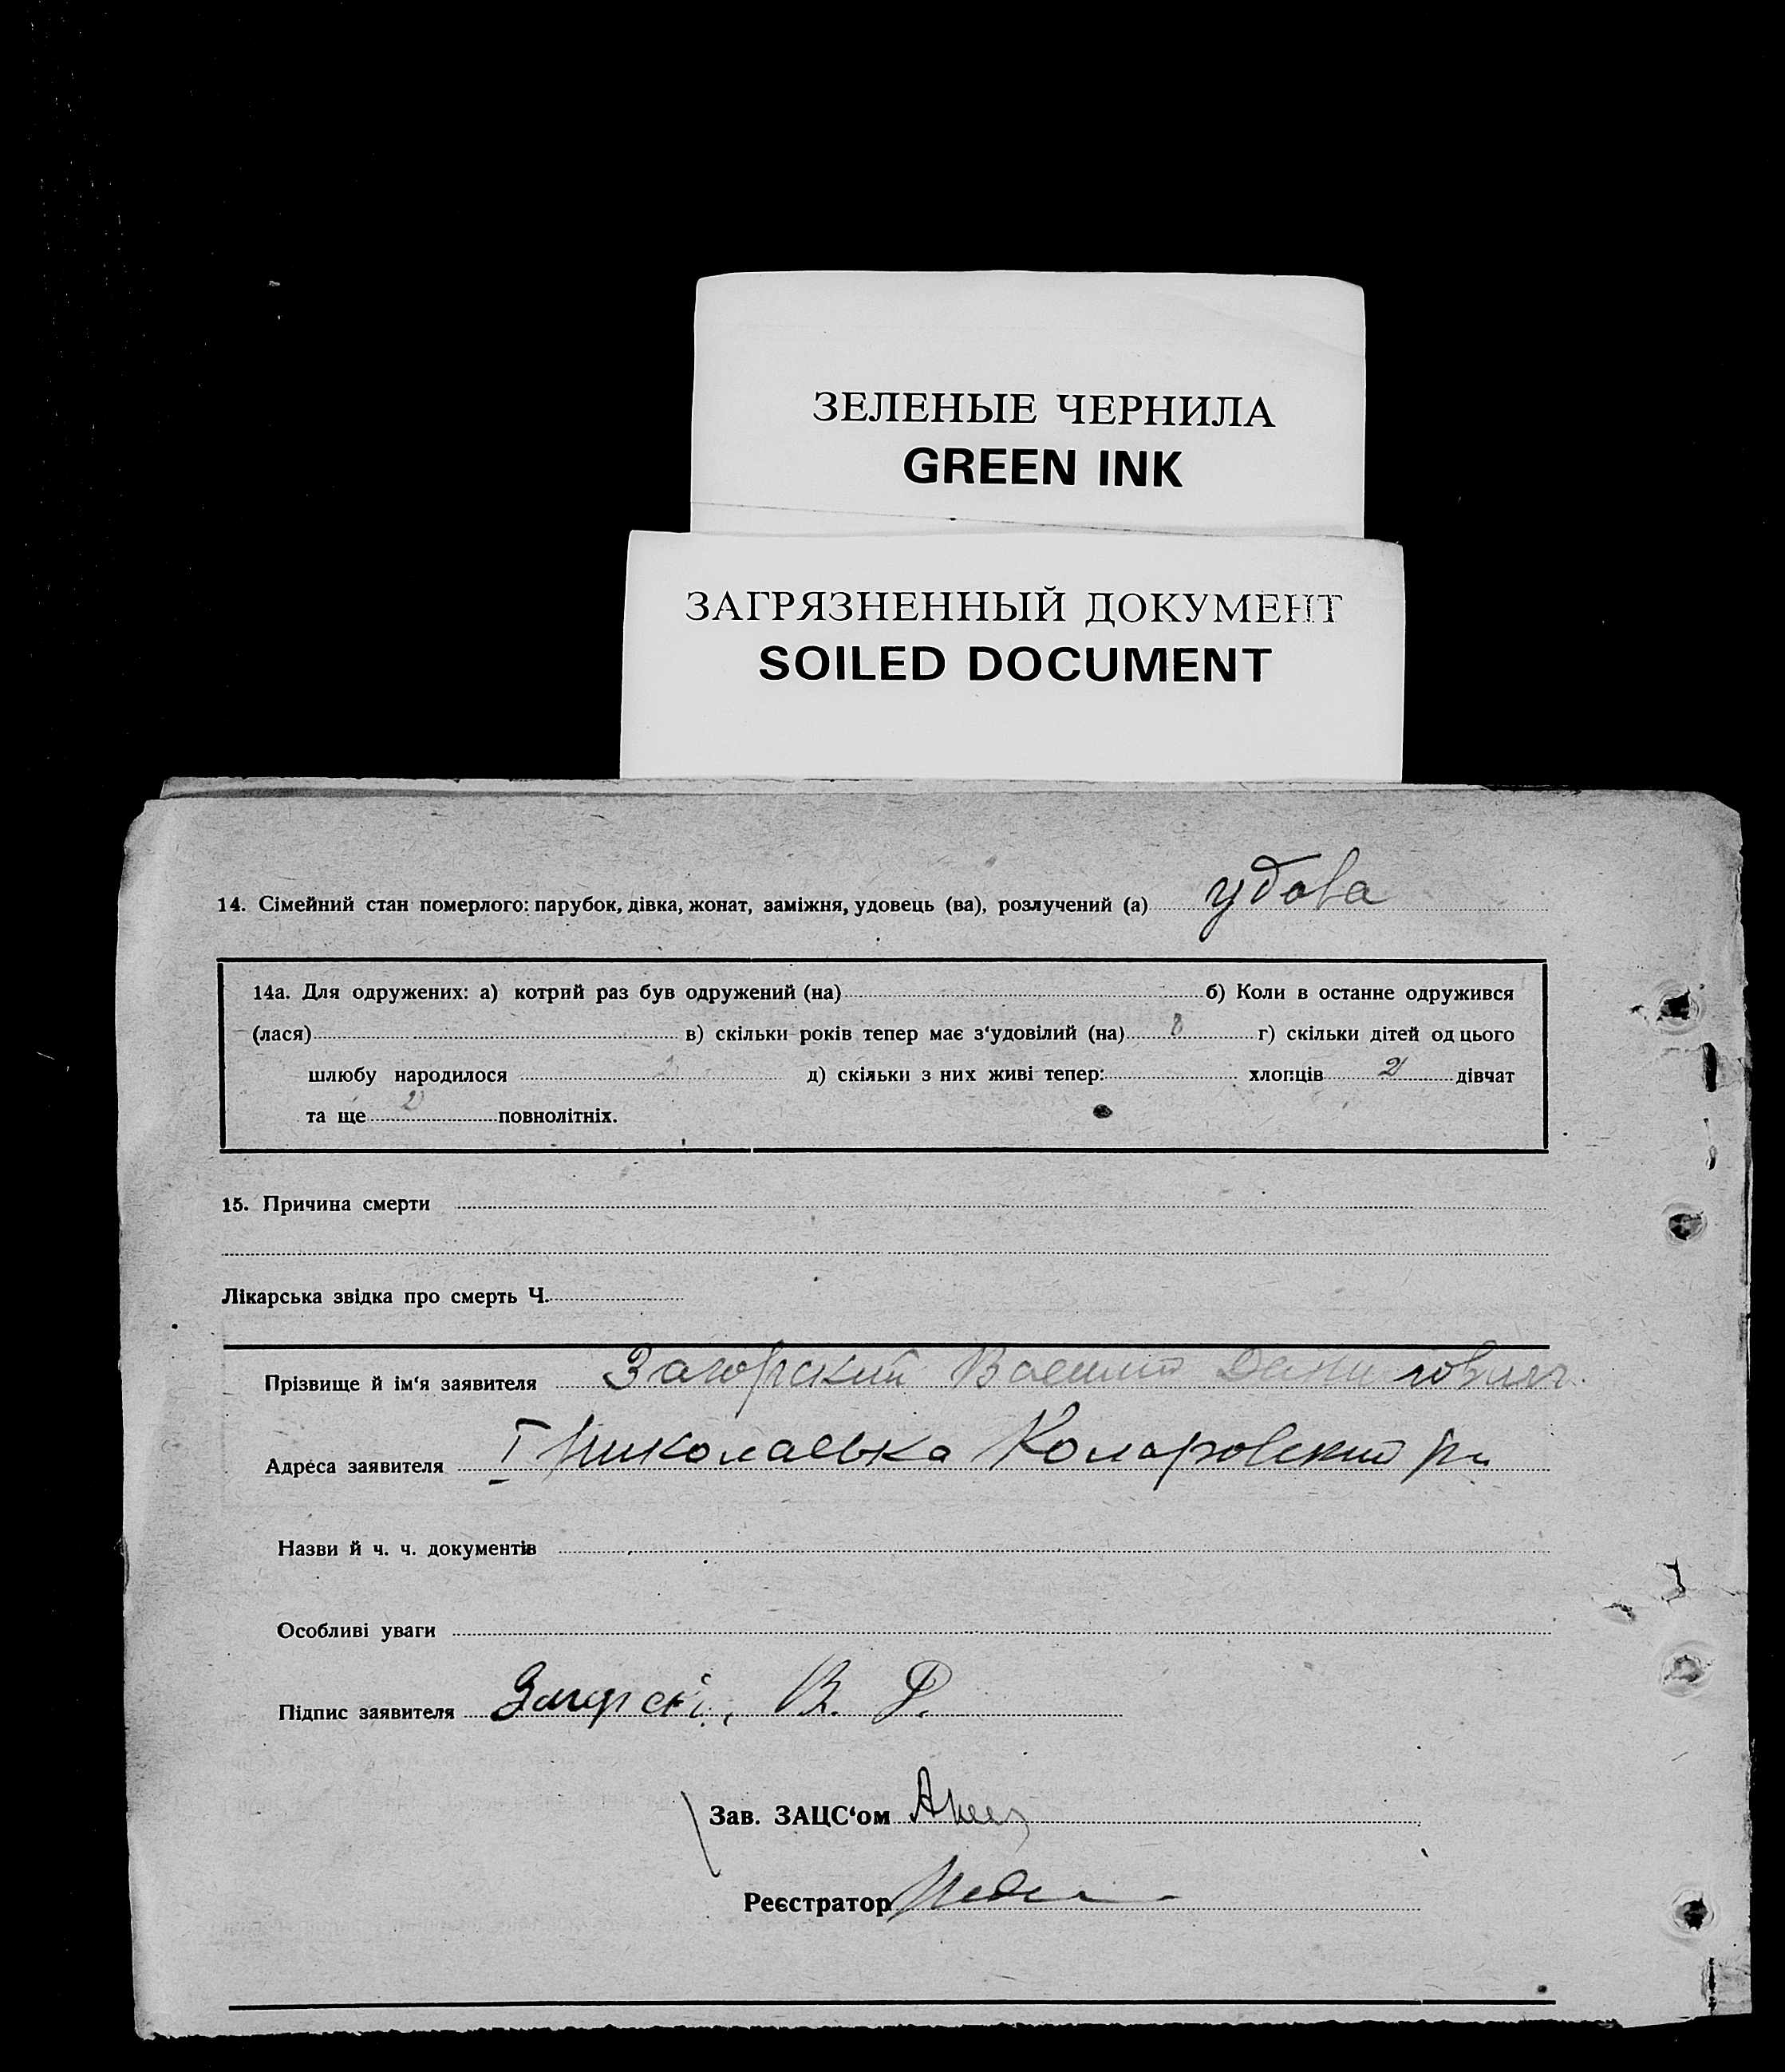 ЗЕЛЕНЫЕ ЧЕРНИЛА
GREEN INK
ЗАГРЯЗНЕННЫЙ ДОКУМЕНТ
SOILED DOCUMENT
14. Сімейний стан померлого: парубок, дівка, жонат, заміжня, удовець (ва), розлучений (а) удова
14а. Для одружених: а) котрий раз був одружений (на) б) Коли в останне одружився
(лася) в) скільки років тепер має з‘удовілий (на) г) скільки дітей од цього
шлюбу народилося д) скільки з них живі тепер: хлопців 2 дівчат
та ще 2 повнолітніх.
15. Причина смерти
Лікарська звідка про смерть Ч.
Прізвище й ім‘я заявителя Загорский Василий Данилович
Адреса заявителя I Николаевка Коларовский рн
Назви й ч. ч. документів
Особливі уваги
Підпис заявителя В. Д.
Зав. ЗАЦС‘ом
Реєстратор